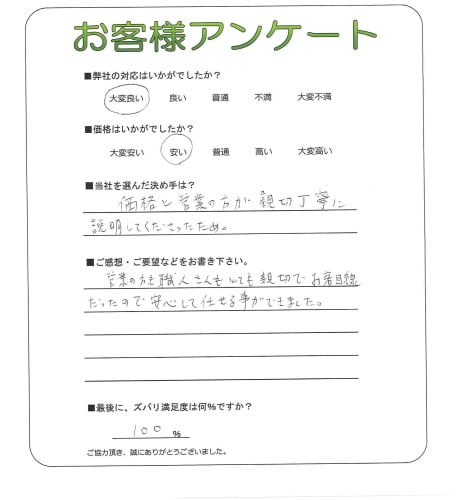 お客様アンケート
■弊社の対応はいかがでしたか？
大変良い 良い 普通 不満 大変不満
■価格はいかがでしたか？
大変安い 安い 普通 高い 大変高い
■当社を選んだ決め手は？
価格と営業の方が親切丁寧に
説明してくださったため。
■ご感想・ご要望などをお書き下さい。
営業の方も職人さんもとても親切でお客目線
だったので安心して任せる事ができました。
■最後に、ズバリ満足度は何%ですか？
100 %
ご協力頂き、誠にありがとうございました。